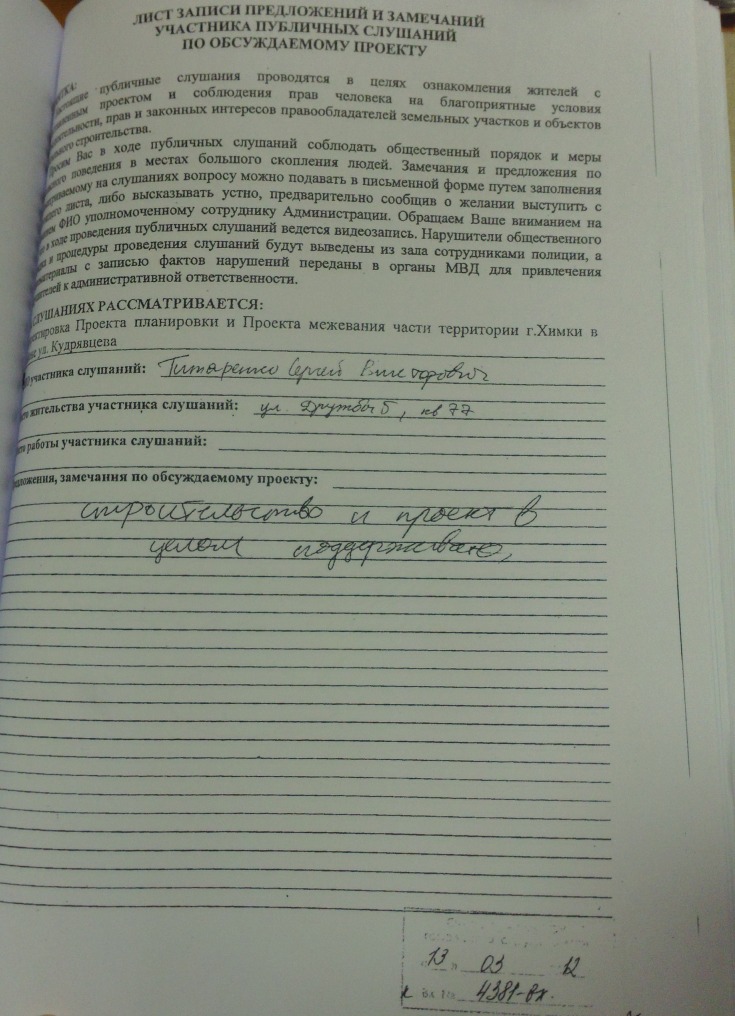 ЛИСТ ЗАПИСИ ПРЕДЛОЖЕНИЙ И ЗАМЕЧАНИЙ
УЧАСТНИКА ПУБЛИЧНЫХ СЛУШАНИЙ
ПО ОБСУЖДАЕМОМУ ПРОЕКТУ
публичные слушания проводятся в целях ознакомления жителей с
проектом и соблюдения прав человека на благоприятные условия
прав и законных интересов правообладателей земельных участков и объектов
строительства.
Вас в ходе публичных слушаний соблюдать общественный порядок и меры
поведения в местах большого скопления людей. Замечания и предложения по
на слушаниях вопросу можно подавать в письменной форме путем заполнения
листа, либо высказывать устно, предварительно сообщив о желании выступить с
ФИО уполномоченному сотруднику Администрации. Обращаем Ваше вниманием на
в ходе проведения публичных слушаний ведется видеозапись. Нарушители общественного
и процедуры проведения слушаний будут выведены из зала сотрудниками полиции, а
материалы с записью фактов нарушений переданы в органы МВД для привлечения
к административной ответственности.
СЛУШАНИЯХ РАССМАТРИВАЕТСЯ:
Проекта планировки и Проекта межевания части территории г.Химки в
ул. Кудрявцева
участника слушаний: Титаренко Сергей Викторович
жительства участника слушаний: ул. Дружбы 5, кв 77
работы участника слушаний:
замечания по обсуждаемому проекту:
строительство и проект в
целом поддерживаю,
13 03 12
4381-вх.